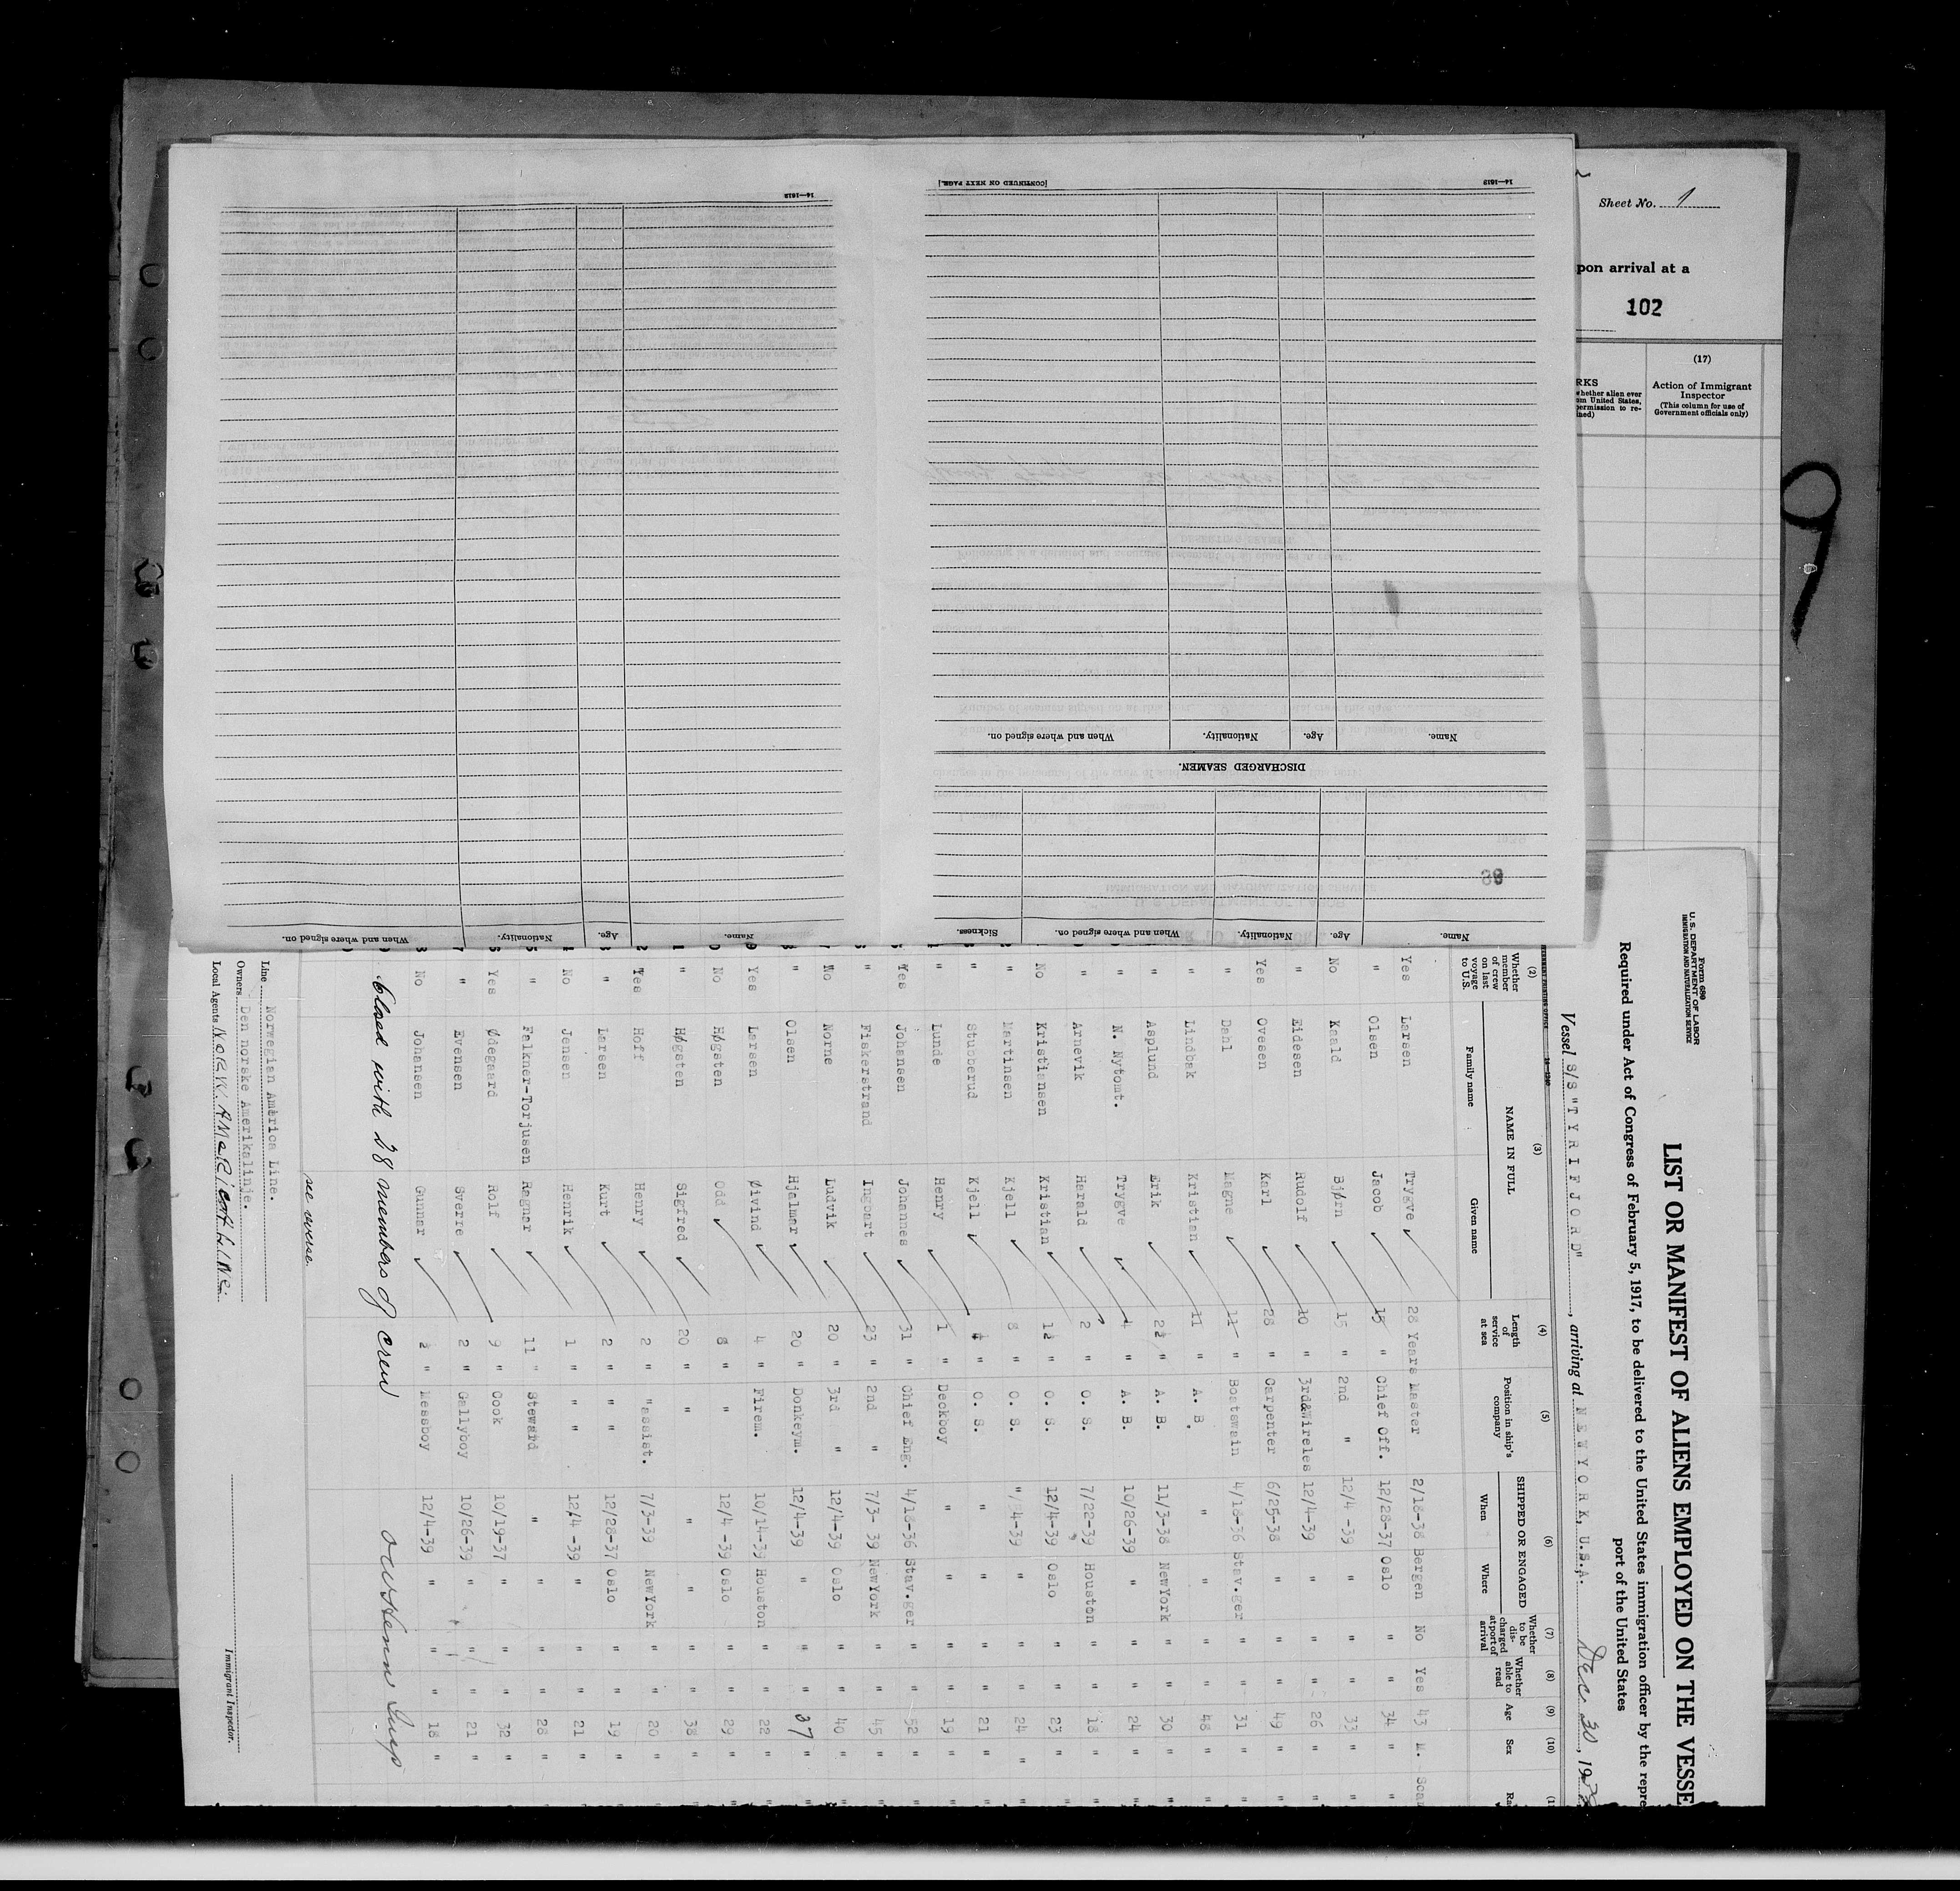 Sheet No. 1
pon arrival at a
102
(17)
RKS
whether alien ever
om United States,
permission to re-
ined)
Action of Immigrant
Inspector
(This column for use of
Government officials only)
9
14—1612
When and where signed on. Nationality. Age. Name.
[CONTINUED ON NEXT PAGE.] 14—1612
When and where signed on. Nationality. Age. Name.
DISCHARGED SEAMEN.
Sickness. When and where signed on. Nationality. Age. Name.
Form 680
U. S. DEPARTMENT OF LABOR
IMMIGRATION AND NATURALIZATION SERVICE
LIST OR MANIFEST OF ALIENS EMPLOYED ON THE VESSE
Required under Act of Congress of February 5, 1917, to be delivered to the United States immigration officer by the repre
port of the United States
Vessel S/S "TYRIFJORD", arriving at NEW YORK, U.S.A. Dec 30, 193
(2) (3) (4) (5) (6) (7) (8) (9) (10)
Whether member of crew on last voyage to U.S. NAME IN FULL Family name Given name Length of service at sea Position in ship's company SHIPPED OR ENGAGED When Where Whether to be discharged at port of arrival Whether able to read Age Sex
Yes Larsen Trygve 28 Years Master 2/18-38 Bergen No Yes 43 M. Scan
" Olsen Jacob 15 " Chief Off. 12/28-37 Oslo " " 34 " "
No Kaald Bjørn 15 " 2nd " 12/4 -39 " " " 33 " "
" Eidesen Rudolf 10 " 3rd&Wireles 12/4-39 " " " 26 " "
Yes Ovesen Karl 28 " Carpenter 6/25-38 " " " 49 " "
" Dahl Magne 11 " Boatswain 4/18-36 Stav.ger " " 31 " "
" Lindbak Kristian 11 " A. B. " " " " 48 " "
" Asplund Erik 2½ " A. B. 11/3-38 NewYork " " 30 " "
" N. Nytomt. Trygve 4 " A. B. 10/26-39 " " " 24 " "
" Arnevik Harald 2 " O. S. 7/22-39 Houston " " 18 " "
No Kristiansen Kristian 1½ " O. S. 12/4-39 Oslo " " 23 " "
" Martinsen Kjell 8 " O. S. " 4-39 " " " 24 " "
" Stubberud Kjell " O. S. " " " " 21 " "
" Lunde Henry 1 " Deckboy " " " " 19 " "
Yes Johansen Johannes 31 " Chief Eng. 4/18-36 Stav.ger " " 52 " "
" Fiskerstrand Ingbart 23 " 2nd " 7/3- 39 NewYork " " 45 " "
No Norne Ludvik 20 " 3rd " 12/4-39 Oslo " " 40 " "
" Olsen Hjalmar 20 " Donkeym. 12/4-39 " " " 37 " "
Yes Larsen Øivind 4 " Firem. 10/14-39 Houston " " 22 " "
No Høgsten Odd 8 " " 12/4 -39 Oslo " " 29 " "
" Høgsten Sigfred 20 " " " " " " 38 " "
Yes Hoff Henry 2 " "assist. 7/3-39 NewYork " " 20 " "
" Larsen Kurt 2 " " 12/28-37 Oslo " " 19 " "
No Jensen Henrik 1 " " 12/4 -39 " " " 21 " "
" Falkner-Torjusen Ragnar 11 " Steward " " " " 28 " "
Yes Ødegaard Rolf 9 " Cook 10/19-37 " " " 32 " "
" Evensen Sverre 2 " Gallyboy 10/26-39 " " " 21 " "
No Johansen Gunnar ½ " Messboy 12/4-39 " " " 18 " "
Closed with 28 members of crew
see reverse.
Line Norwegian America Line.
Owners Den norske Amerikalinje.
Local Agents NORW. AMERICAN LINE
Immigrant Inspector.